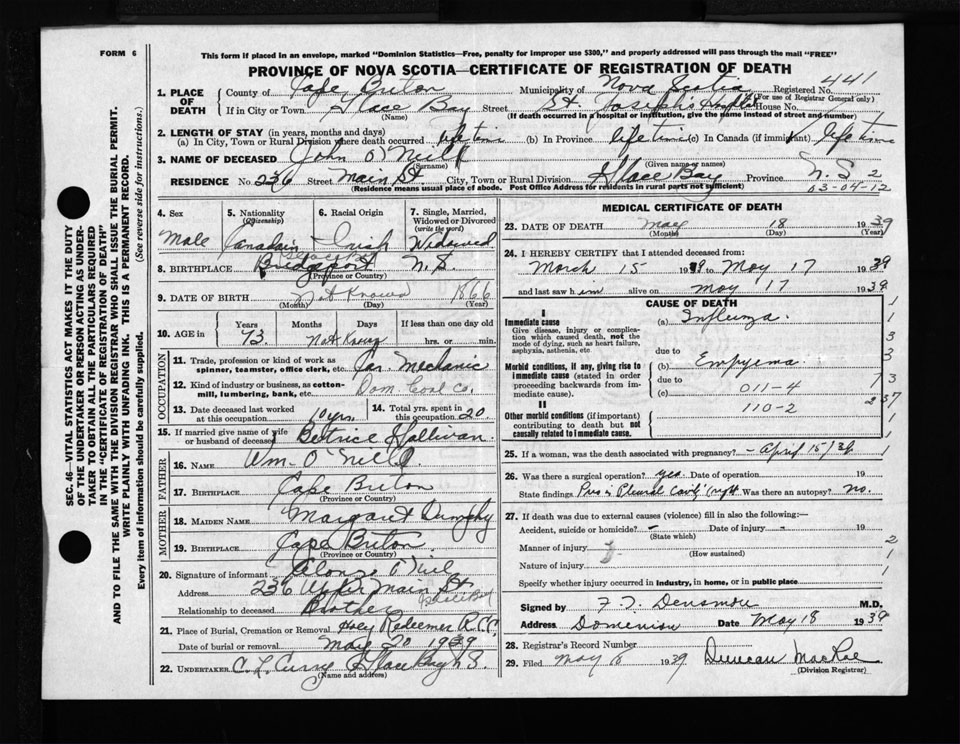 FORM 6
This form if placed in an envelope, marked "Dominion Statistics—Free, penalty for improper use $300," and properly addressed will pass through the mail "FREE"
PROVINCE OF NOVA SCOTIA—CERTIFICATE OF REGISTRATION OF DEATH
SEC. 46—VITAL STATISTICS ACT MAKES IT THE DUTY OF THE UNDERTAKER OR PERSON ACTING AS UNDERTAKER TO OBTAIN ALL THE PARTICULARS REQUIRED IN THE "CERTIFICATE OF REGISTRATION OF DEATH" AND TO FILE THE SAME WITH THE DIVISION REGISTRAR WHO SHALL ISSUE THE BURIAL PERMIT.
WRITE PLAINLY WITH UNFADING INK. THIS IS A PERMANENT RECORD.
Every item of information should be carefully supplied. (See reverse side for instructions.)
1. PLACE OF DEATH
County of Cape Briton Municipality of Nova Scotia Registered No. 441
(For use of Registrar General only)
If in City or Town Glace Bay Street St. Josephs Hospital House No.
(Name) (If death occurred in a hospital or institution, give the name instead of street and number)
2. LENGTH OF STAY (in years, months and days)
(a) In City, Town or Rural Division where death occurred lifetime (b) In Province lifetime (c) In Canada (if immigrant) lifetime
3. NAME OF DECEASED John O'Neill
(Surname) (Given name or names)
RESIDENCE No. 236 Street Main St. City, Town or Rural Division Glace Bay Province N.S 2
(Residence means usual place of abode. Post Office Address for residents in rural parts not sufficient) 03-04-12
4. Sex 5. Nationality (Citizenship) 6. Racial Origin 7. Single, Married, Widowed or Divorced (write the word)
Male Canadian Irish Widowed
8. BIRTHPLACE Bridgeport N.S.
(Province or Country)
9. DATE OF BIRTH Not Known 1866
(Month) (Day) (Year)
10. AGE in Years Months Days If less than one day old
73. Not Known hrs. or min.
OCCUPATION
11. Trade, profession or kind of work as spinner, teamster, office clerk, etc. Mechanic
12. Kind of industry or business, as cotton-mill, lumbering, bank, etc. Dom. Coal Co.
13. Date deceased last worked at this occupation 10 yrs. 14. Total yrs. spent in this occupation 20.
15. If married give name of wife or husband of deceased Beatrice Sullivan.
FATHER
16. NAME Wm. O'Neill.
17. BIRTHPLACE Cape Briton
(Province or Country)
MOTHER
18. MAIDEN NAME Margaret
19. BIRTHPLACE Cape Briton.
(Province or Country)
20. Signature of informant
Address 236 Upper Main St
Relationship to deceased Brother
21. Place of Burial, Cremation or Removal Holy Redeemer R.C.C.
Date of burial or removal May 20 1939
22. UNDERTAKER C. L. Curry Glace Bay N.S.
(Name and address)
MEDICAL CERTIFICATE OF DEATH
23. DATE OF DEATH May 18 1939
(Month) (Day) (Year)
24. I HEREBY CERTIFY that I attended deceased from:
March 15 1939 to May 17 1939
and last saw him alive on May 17 1939
CAUSE OF DEATH
I
Immediate cause (a) Influenza.
Give disease, injury or complication which caused death, not the mode of dying, such as heart failure, asphyxia, asthenia, etc
due to
Morbid conditions, if any, giving rise to immediate cause (stated in order proceeding backwards from immediate cause).
(b) Empyema
due to
(c) 011-4
II
110-2
Other morbid conditions (if important) contributing to death but not causally related to immediate cause.
25. If a woman, was the death associated with pregnancy? — April 15/39.
26. Was there a surgical operation? Yes. Date of operation 19
State findings Pus in Pleural Cavity (right Was there an autopsy? no.
27. If death was due to external causes (violence) fill in also the following:—
Accident, suicide or homicide? - Date of injury - 19
(State which)
Manner of injury
(How sustained)
Nature of injury
Specify whether injury occurred in industry, in home, or in public place
Signed by F. T. Densmore M.D.
Address Dominion Date May 18 1939
28. Registrar's Record Number
29. Filed May 18 1939 Duncan MacRae
(Division Registrar)